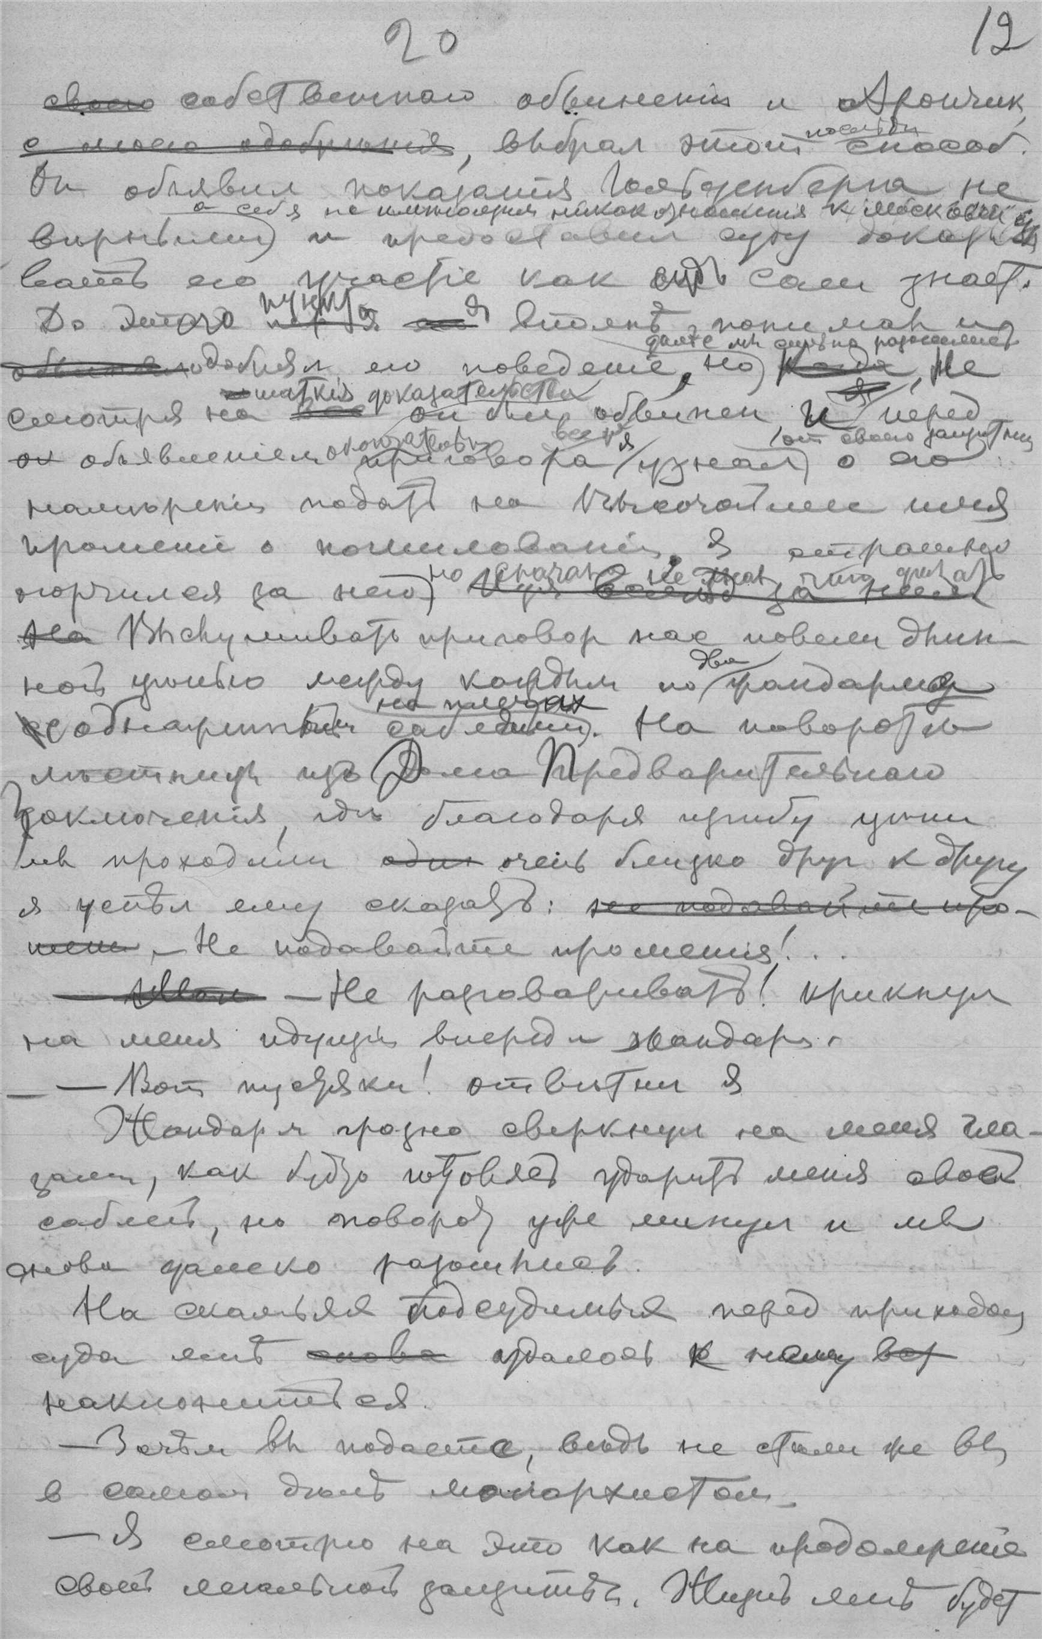 20
12
своего собственнаго обвиненія и Арончик,
с моего одобренія, выбрал этот последн. способ.
Он объявил показанія Гольденберга не
а себя не имеющим никак. отношенія к Московск.
вирными и предоставил суду доказы
вать его участіе как суд сам знает.
До этого пункта я вполнѣ понимал и
одобрял его поведеніе, но далее мы сильно разошлись. Не
смотря на шаткія доказательства он был обвинен и перед
объявленіем окончательн. приговора я узнал от своего защитника о его
намѣреніи подать на Высочайшее имя
прошеніе о помилованіи. Я страшно
огорчился за него, но сначала не знал что дѣлать
На Выслушивать приговор нас повели длин-
ной цѣпью между каждым по два жандарма
с обнаженными на плечах саблями. На поворотѣ
лѣстницы из Дома Предварительнаго
Заключенія, гдѣ благодаря изгибу цѣпи
мы проходили очень близко друг к другу
я успѣл ему сказать: не подавайте про-
шенія – Не подавайте прошенія!...
– Не разговаривать! крикнул
на меня идущій впереди жандарм.
– Вот пустяки! отвѣтил я
Жандарм грозно сверкнул на меня гла-
зами, как будто готовясь ударить меня своей
саблей, но поворот уже минул и мы
снова далеко разошлись.
На скамьях подсудимых перед приходом
суда мнѣ снова удалось к нему
наклониться.
– Зачѣм вы подаете, вѣдь не стали же вы
в самом дѣлѣ монархистом.
– Я смотрю на это как на продолженіе
своей легальной защиты. Жизнь мнѣ будет